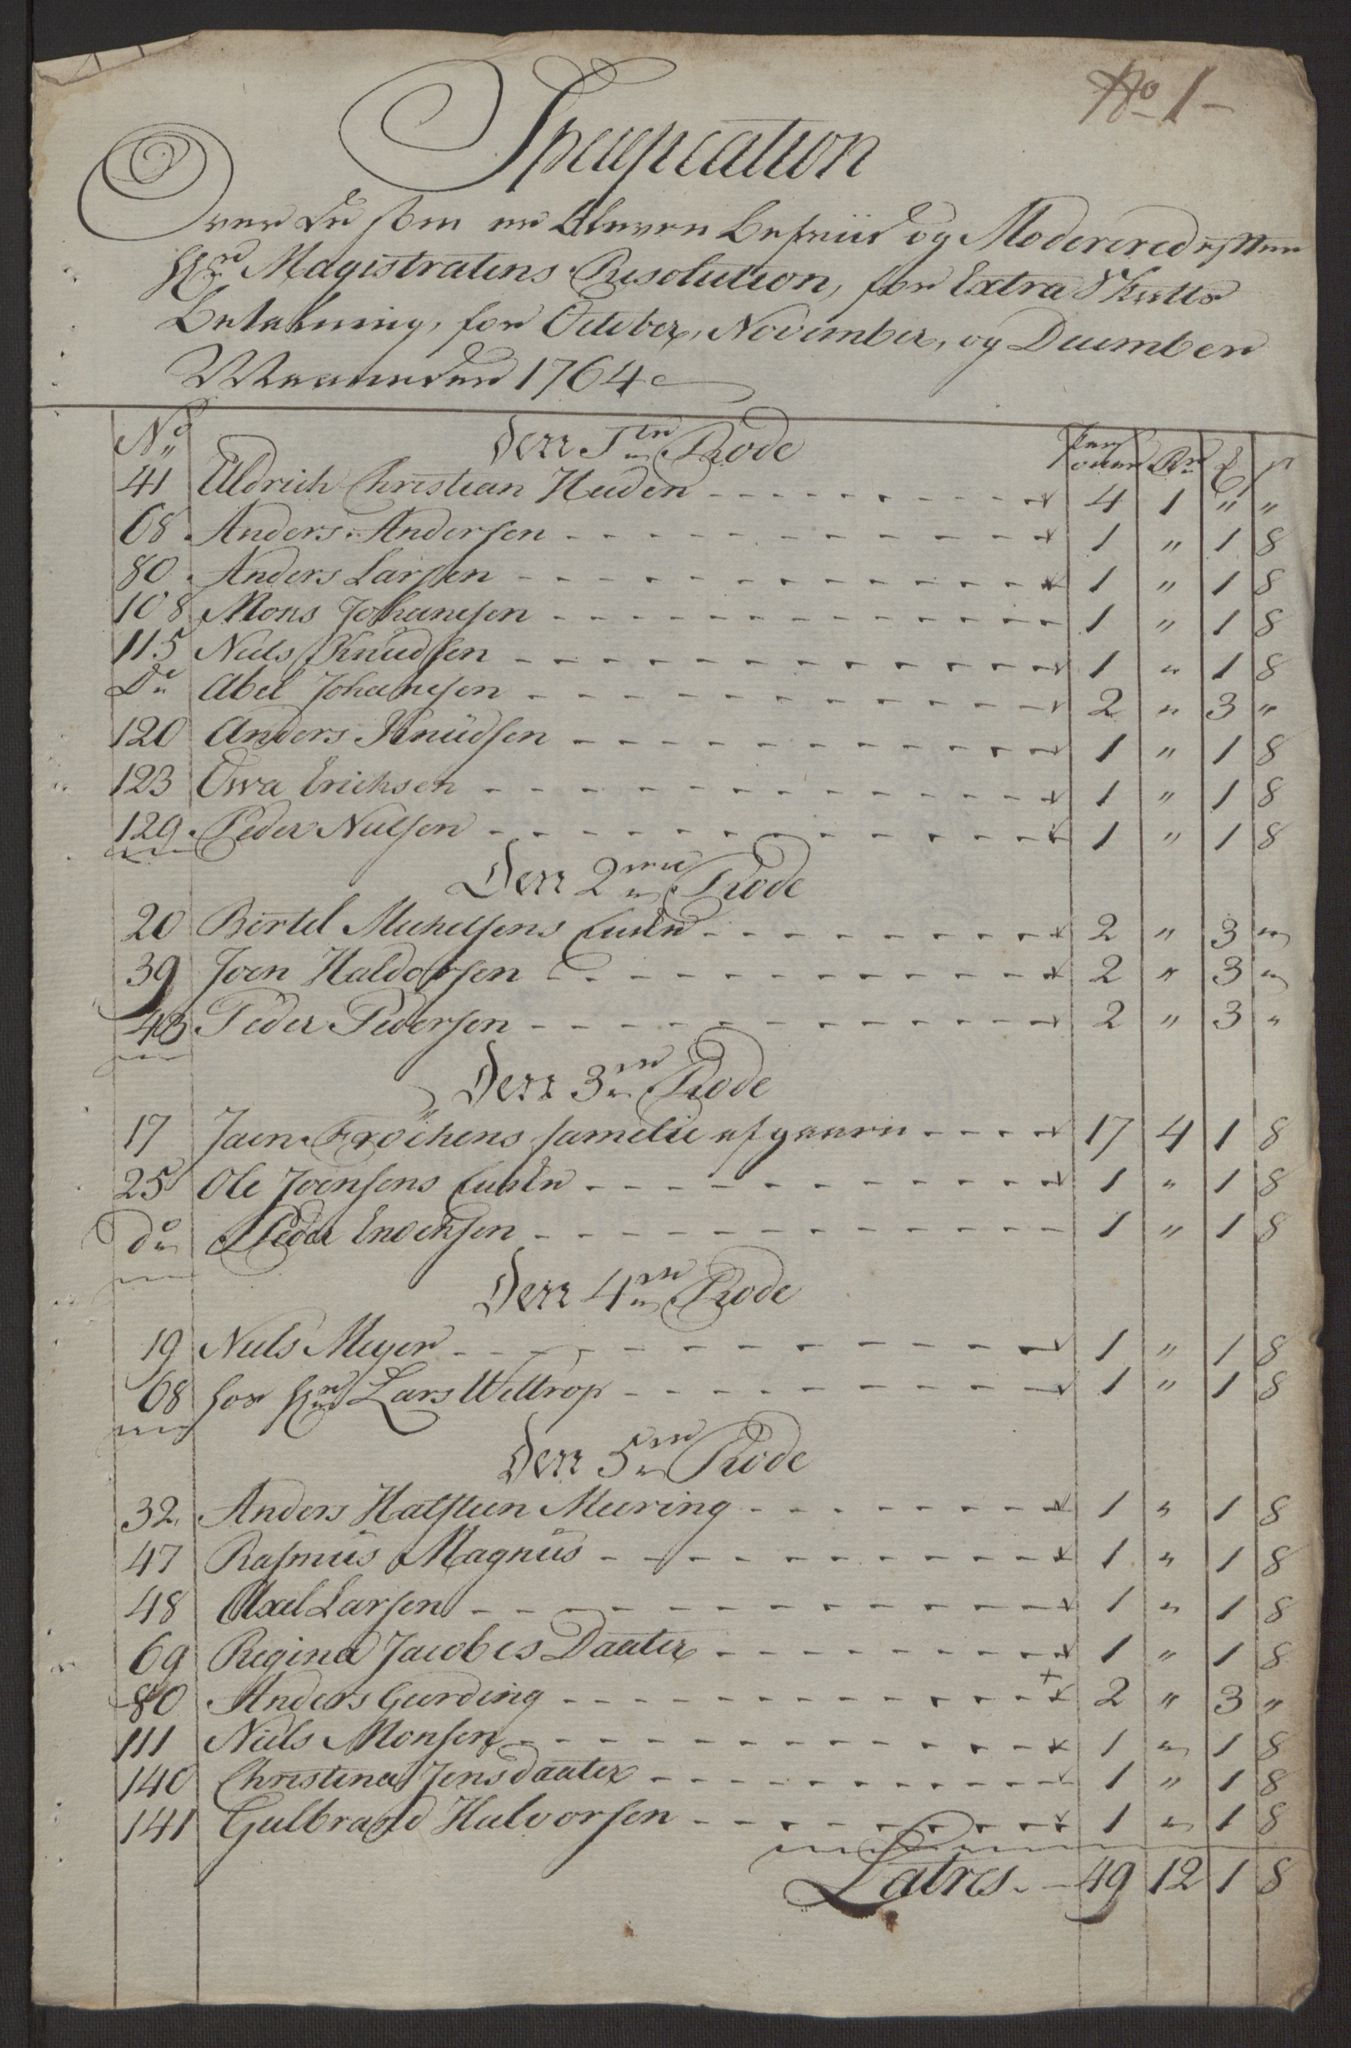 No 1
Specification
Over De som er bleven befriid og Modererede efter
Magistratens Resolution, for Extra Skatts
Betalning, for October, November, og December
Maaneder 1764
No Den 1te Rode Personer Rd
41 Uldrich Christian Heiden 4 1 " "
68 Anders Andersen 1 " 1 8
80 Anders Larsen 1 " 1 8
108 Mons Johansen 1 " 1 8
115 Niels Knudsen 1 " 1 8
Do Abel Johansen 2 " 3 "
120 Anders Knüdsen 1 " 1 8
123 Ewa Erichsen 1 " 1 8
129 Peder Nielsen 1 " 1 8
Den 2den Rode
20 Bertel Michelsens Enke 2 " 3 "
39 Joen Haldorsen 2 " 3 "
43 Peder Pedersen 2 " 3 "
Den 3de Rode
17 Jaen Fröchens familie af gaarn 17 4 1 8
25 Ole Joensens Enke 1 " 1 8
do Peder Enochsen 1 " 1 8
Den 4de Rode
19 Niels Meyer 1 " 1 8
68 hos Hr Lars Wettrop 1 " 1 8
Den 5te Rode
32 Anders Halsteen Meering 1 " 1 8
47 Rasmus Magnus 1 " 1 8
48 Axel Larsen 1 " 1 8
69 Regina Jacobs Daater 1 " 1 8
80 Anders Gierding 2 " 3 "
111 Niels Monsen 1 " 1 8
140 Christina Jens daater 1 " 1 8
141 Gulbrand Halvorsen 1 " 1 8
Latres 49 12 1 8